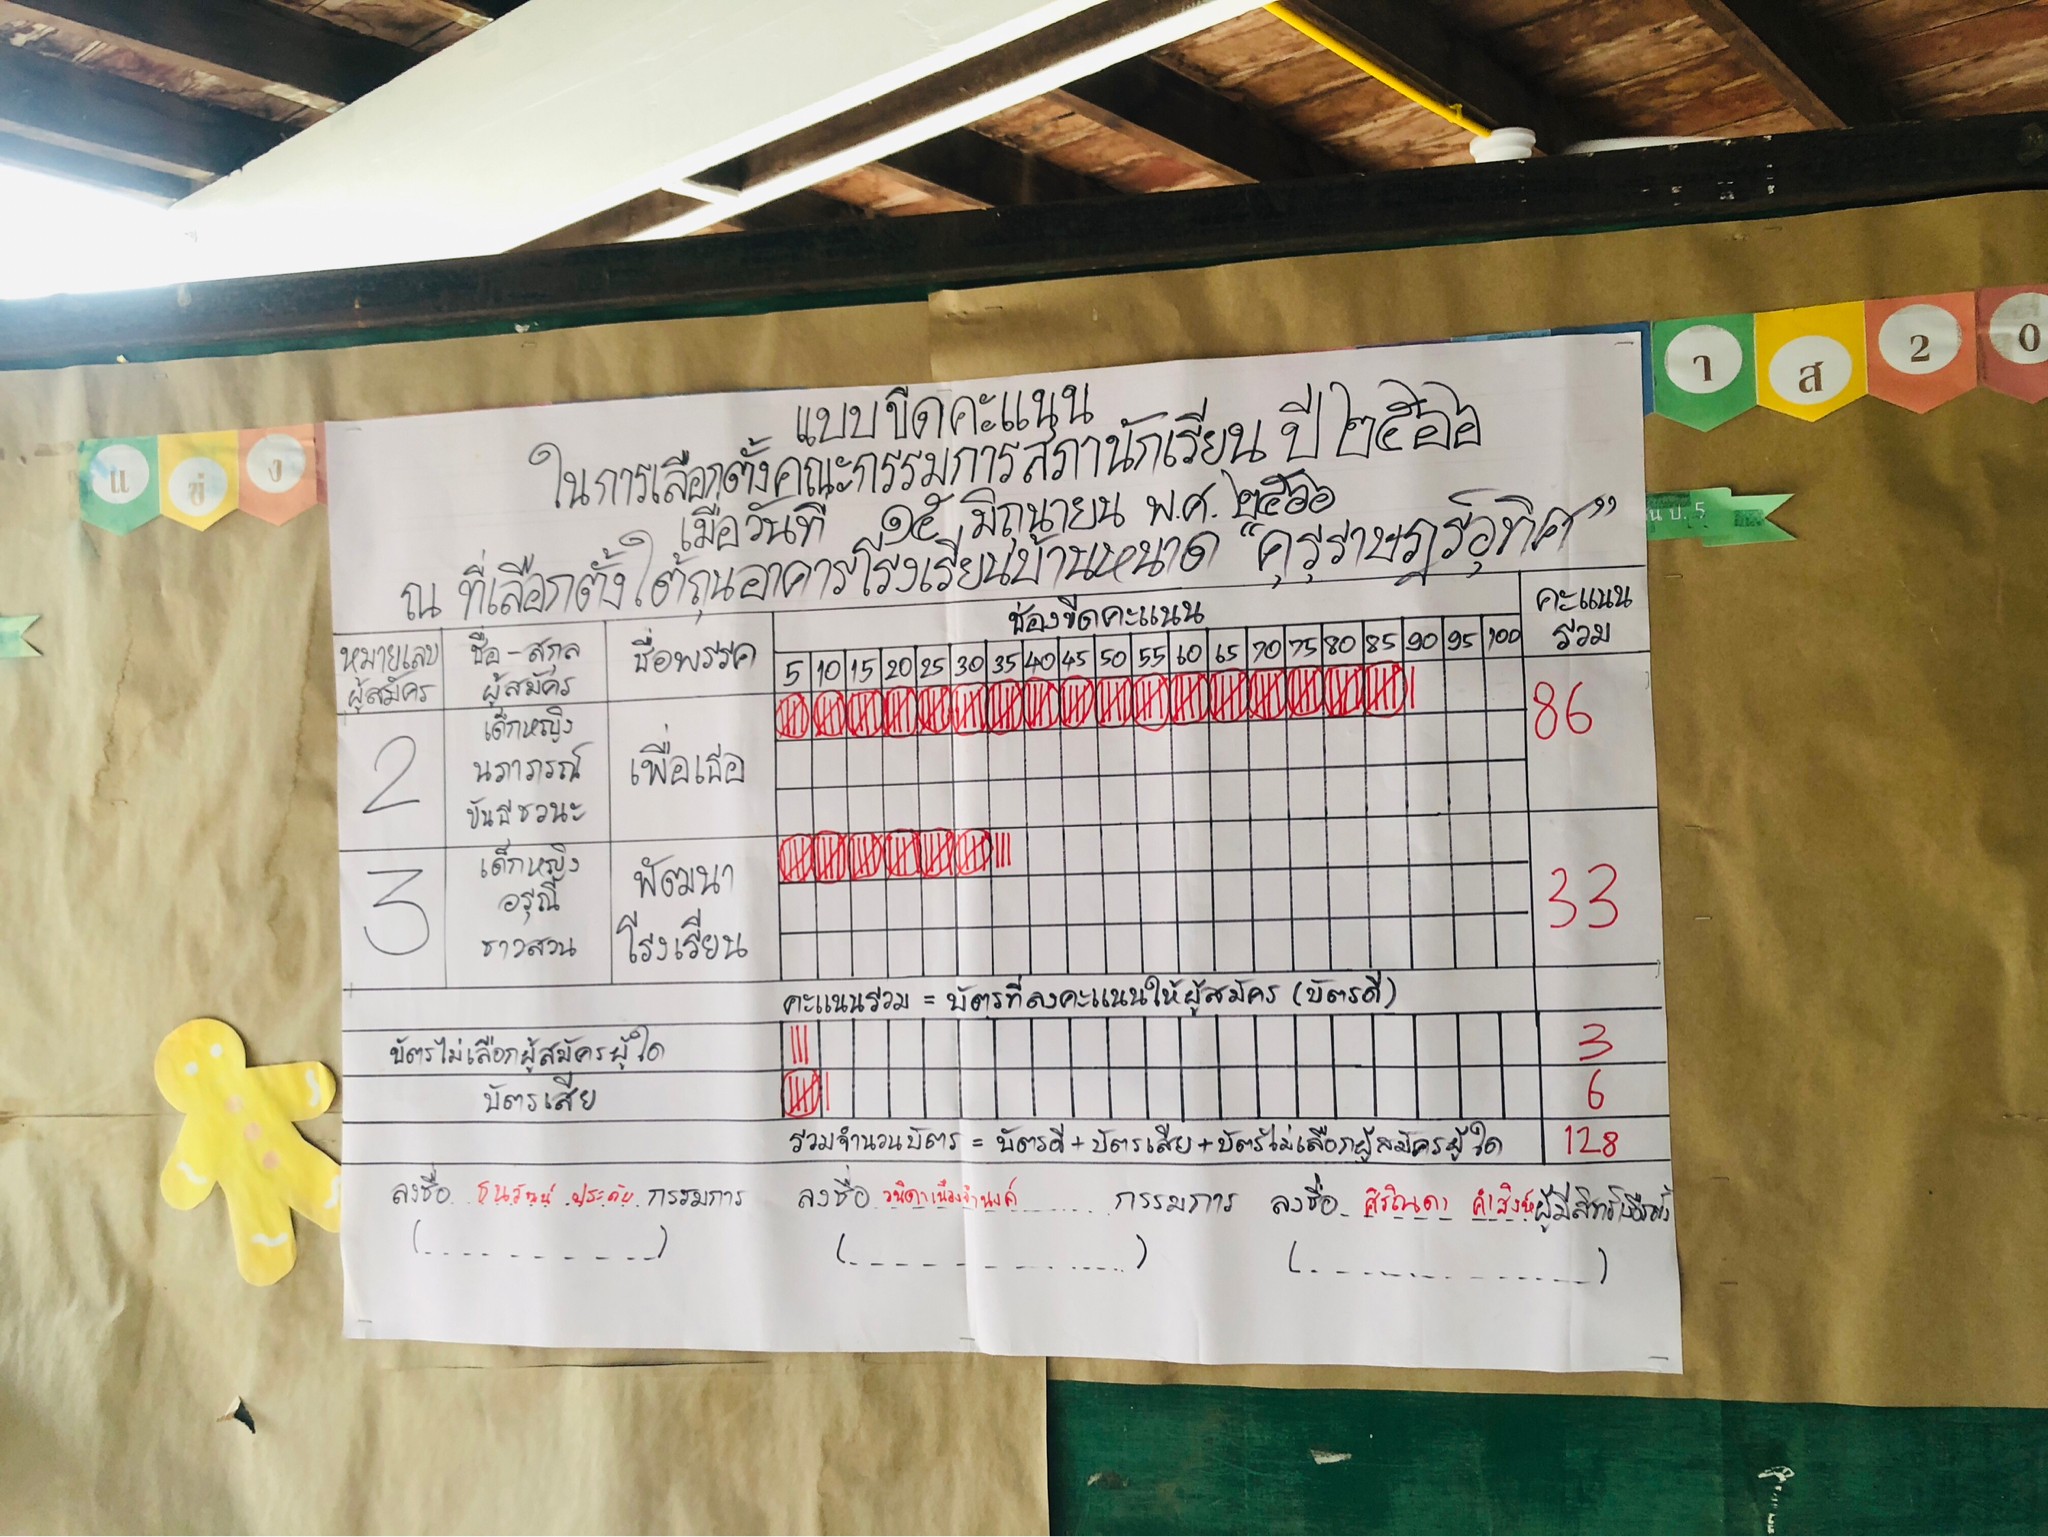 แบบขีดคะแนน
ในการเลือกตั้งคณะกรรมการสภานักเรียน ปี ๒๕๖๖
เมื่อวันที่ ๑๕ มิถุนายน พ.ศ. ๒๕๖๖
ณ ที่เลือกตั้ง ใต้ถุนอาคารโรงเรียนบ้านหนาด "คุรุราษฎร์อุทิศ"
า ส 2 0
แ ข่ ง
น ป. 5
หมายเลขผู้สมัคร ชื่อ-สกุลผู้สมัคร ชื่อพรรค ช่องขีดคะแนน คะแนนรวม
5 10 15 20 25 30 35 40 45 50 55 60 65 70 75 80 85 90 95 100
2 เด็กหญิง นภาภรณ์ เพื่อเธอ 86
3 เด็กหญิง อรุณี ชาวสวน พัฒนาโรงเรียน 33
คะแนนรวม = บัตรที่ลงคะแนนให้ผู้สมัคร (บัตรดี)
บัตรไม่เลือกผู้สมัครผู้ใด 3
บัตรเสีย 6
รวมจำนวนบัตร = บัตรดี + บัตรเสีย + บัตรไม่เลือกผู้สมัครผู้ใด 128
ลงชื่อ กรรมการ ลงชื่อ กรรมการ ลงชื่อ ผู้มีสิทธิเลือกตั้ง